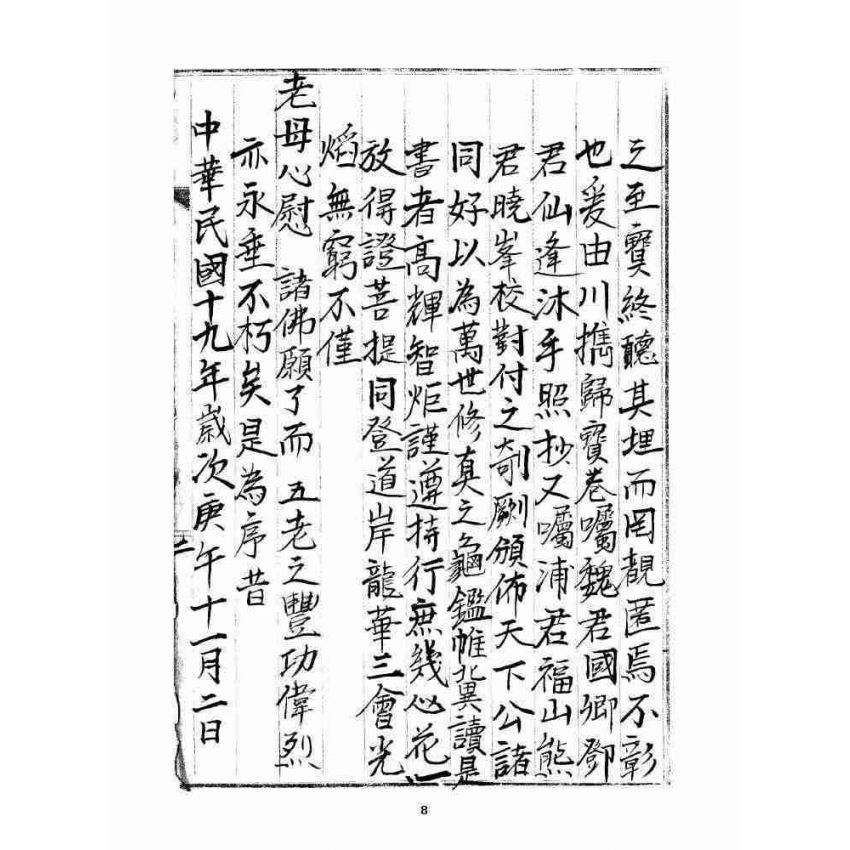 之至寶終聽其埋而罔覩匿焉不彰
也爰由川携歸寶卷囑魏君國卿鄧
君仙逢沐手照抄又囑浦君福山熊
君曉峯校對付之剞劂頒佈天下公諸
同好以為萬世修真之龜鑑惟冀讀是
書者高輝智炬謹遵持行庶幾心花一
放得證菩提同登道岸龍華三會光
焰無窮不僅
老母心慰 諸佛願了而 五老之豐功偉烈
亦永垂不朽矣是為序昔
中華民國十九年歲次庚午十一月二日
二
8